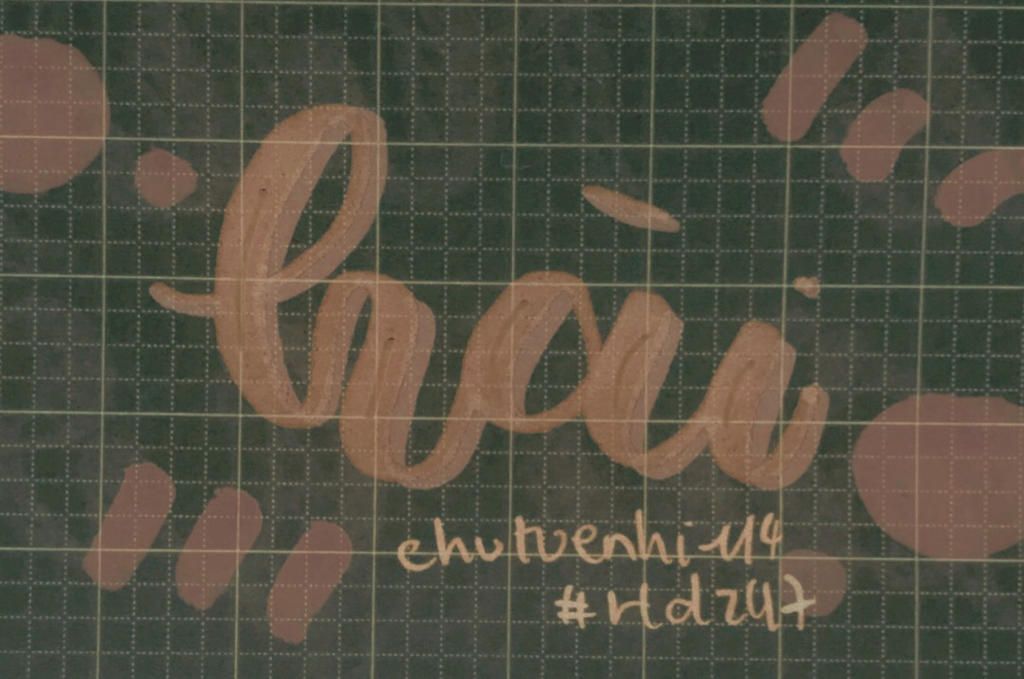 hài
chutuenhi_114
#rld247